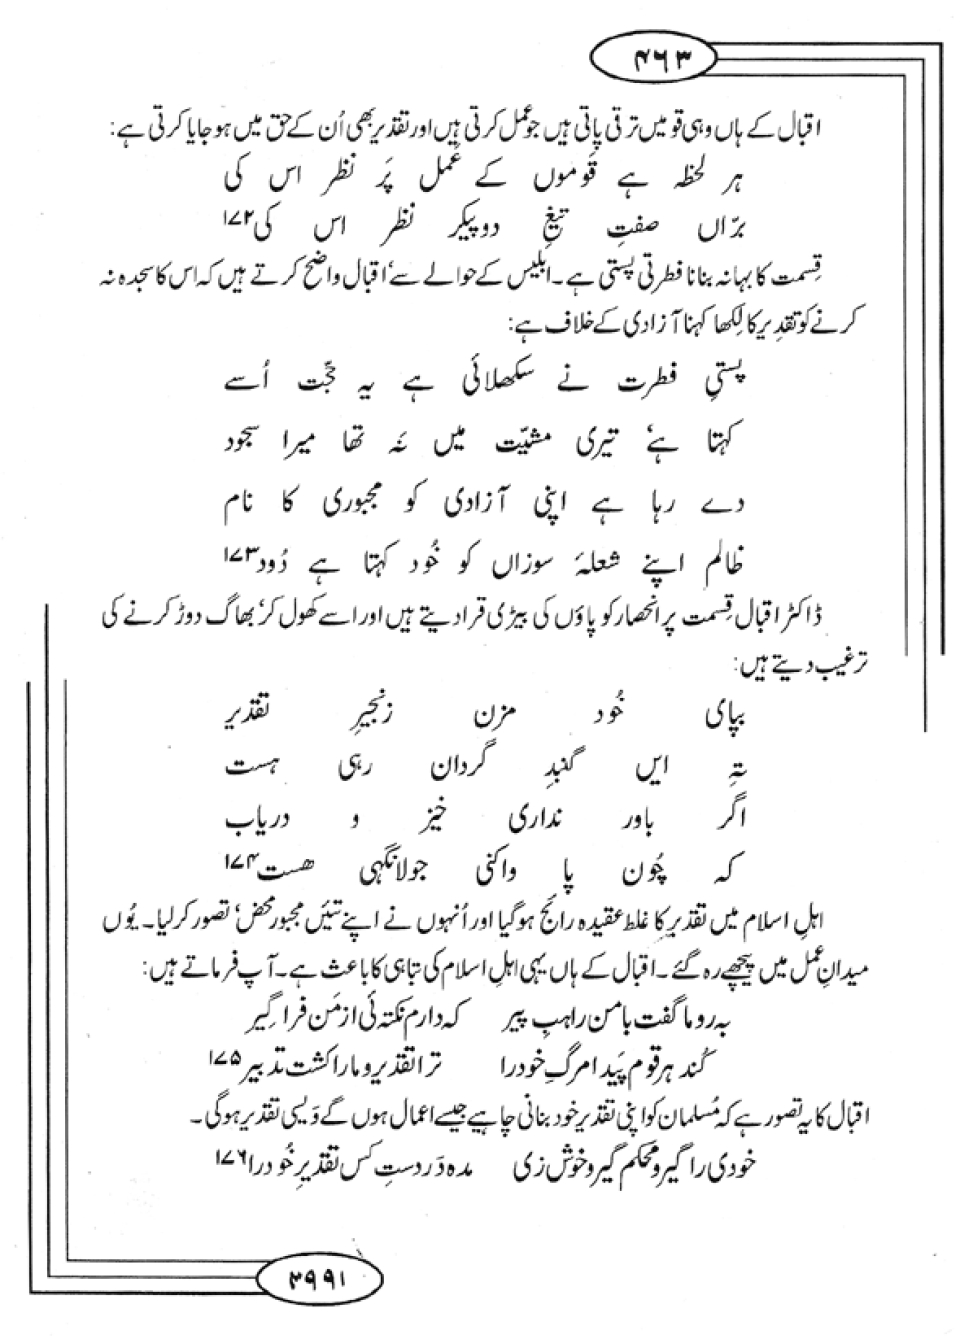 ۴۶۳
اقبال کے ہاں وہی قومیں ترقی پاتی ہیں جو عمل کرتی ہیں اور تقدیر بھی اُن کے حق میں ہو جایا کرتی ہے:
ہر لحظہ ہے قَوموں کے عَمل پَر نظر اس کی
برّاں صفتِ تیغِ دوپیکر نظر اس کی۱۷۲
قِسمت کا بہانہ بنانا فطرتی پستی ہے۔ابلیس کے حوالے سے٬ اقبال واضح کرتے ہیں کہ اس کا سجدہ نہ
کرنے کو تقدیر کا لِکھا کہنا آزادی کے خلاف ہے:
پستیِ فطرت نے سکھلائی ہے یہ حجّت اُسے
کہتا ہے٬ تیری مشیّت میں نہ تھا میرا سجود
دے رہا ہے اپنی آزادی کو مجبوری کا نام
ظالم اپنے شعلۂ سوزاں کو خُود کہتا ہے دُود۱۷۳
ڈاکٹر اقبال قِسمت پر انحصار کو پاؤں کی بیڑی قرار دیتے ہیں اور اسے کھول کر٬ بھاگ دوڑ کرنے کی
ترغیب دیتے ہیں:
بپای خُود مزن زنجیرِ تقدیر
تہِ ایں گنبدِ گردان رہی ہست
اگر باور نداری خیز و دریاب
کہ چُون پا واکنی جولانگہی هست۱۷۴
اہلِ اسلام میں تقدیر کا غلط عقیدہ رائج ہوگیا اور اُنہوں نے اپنے تئیں مجبورِ محض٬ تصور کرلیا۔ یُوں
میدانِ عمل میں پیچھے رہ گئے۔اقبال کے ہاں یہی اہلِ اسلام کی تباہی کا باعث ہے۔آپ فرماتے ہیں:
بہ روما گفت بامن راہبِ پیر کہ دارم نکتہ ئی از مَن فرا گیر
کُند ہر قوم پَیدا مرگِ خود را ترا تقدیر و مارا کشت تدبیر۱۷۵
اقبال کا یہ تصور ہے کہ مُسلمان کو اپنی تقدیر خود بنانی چاہیے جیسے اعمال ہوں گے وَیسی تقدیر ہوگی۔
خودی را گیر و محکم گیر و خوش زی مدہ دَر دستِ کس تقدیرِ خُود را۱۷۶
۳۹۹۱